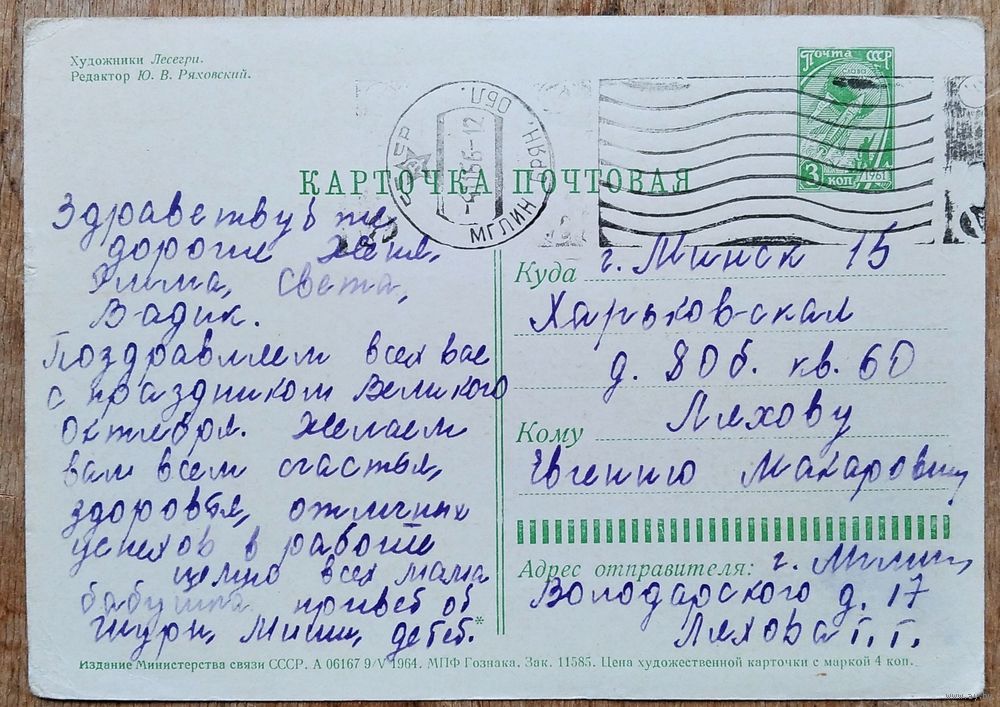 Художники Лесегри.
Редактор Ю. В. Ряховский.
ПОЧТА СССР
СЛАВА
3 КОП
1961
МГЛИН БРЯН. ОБЛ.
КАРТОЧКА ПОЧТОВАЯ
Здравствуйте
дорогие Женя,
Римма, Света,
Вадик.
Поздравляем всех вас
с праздником Великого
октября. Желаем
вам всем счастья,
здоровья, отличных
успехов в работе
целую всех мама
бабушка привет от
Шуры, Миши, детей.
Куда г. Минск 15
Харьковская
д. 80б. кв. 60
Кому Ляхову
Евгению Макаровичу
Адрес отправителя: г. Мглин,
Володарского д. 17
Ляхова Г. Г.
Издание Министерства связи СССР. А 06167 9/V 1964. МПФ Гознака. Зак. 11585. Цена художественной карточки с маркой 4 коп.